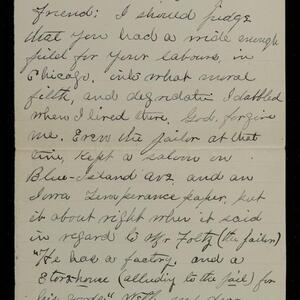 friend: I should judge
that you had a wide enough
field for your labours, in
Chicago. into what moral
filth, and degradation I dabbled
when I lived there, God forgive
me. Even the jailor at that
time, kept a saloon in
Blue-Island ave. and an
Iowa Temperance paper, put
it about right when it said
in regard to Mr Foltz (the jailor)
"He has a factory, and a
Storehouse (alluding to the jail) for
his goods"